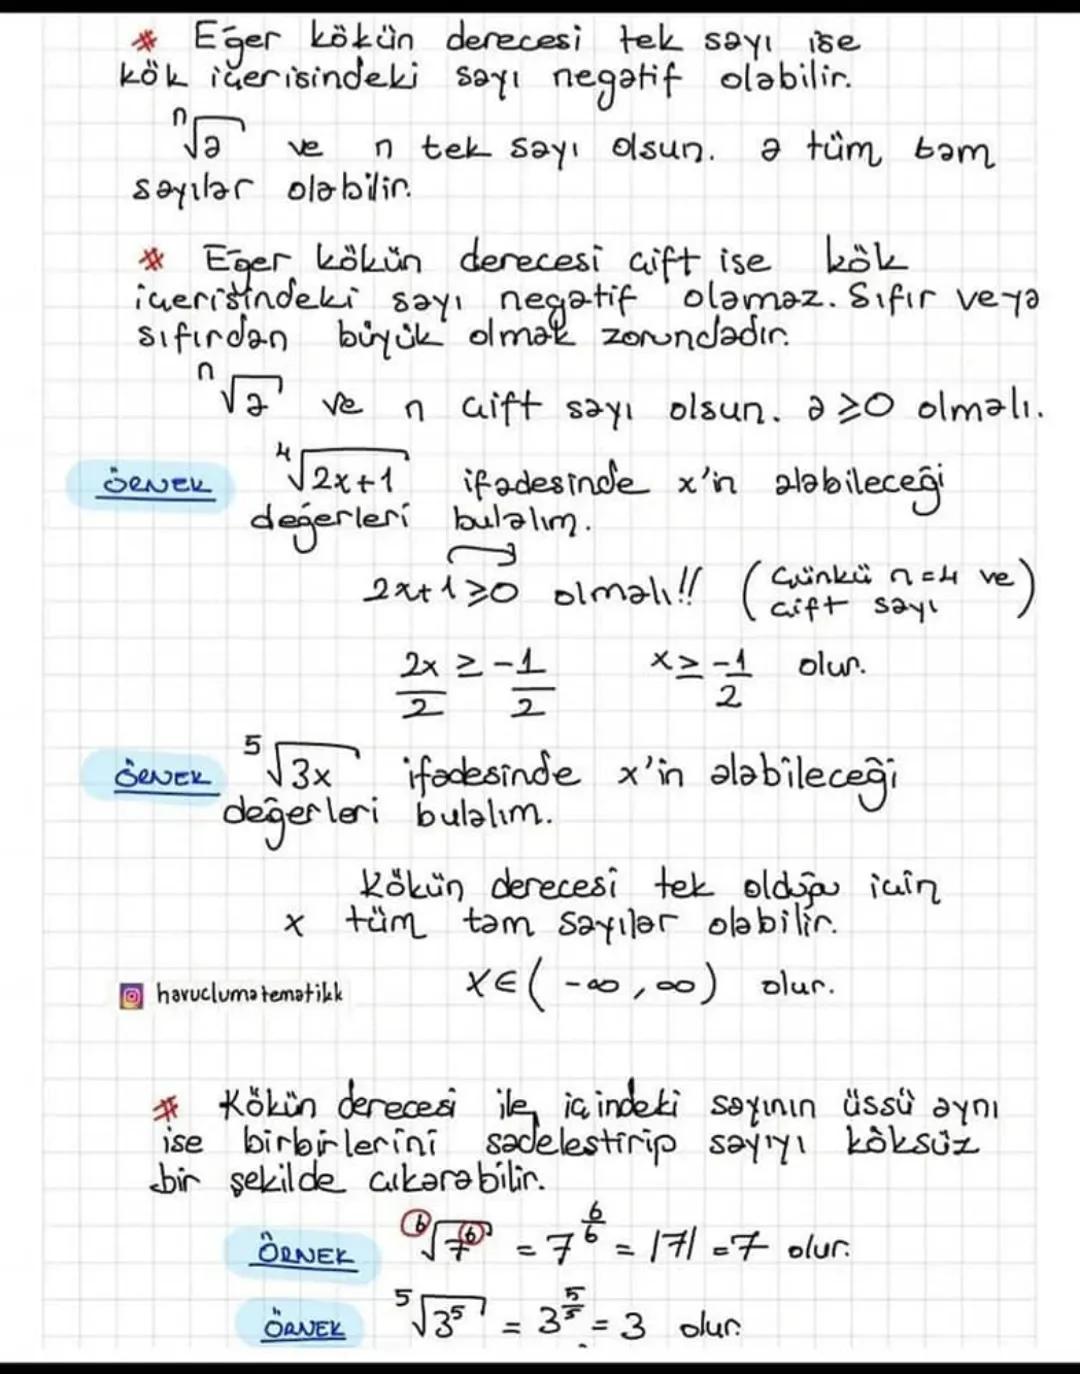 * Eğer kökün derecesi tek sayı ise
kök içerisindeki sayı negatif olabilir.
ⁿ√a ve n tek sayı olsun. a tüm tam
sayılar olabilir.
* Eğer kökün derecesi çift ise kök
içerisindeki sayı negatif olamaz. Sıfır veya
sıfırdan büyük olmak zorundadır.
ⁿ√a ve n çift sayı olsun. a ≥ 0 olmalı.
ÖRNEK ⁴√2x+1 ifadesinde x'in alabileceği
değerleri bulalım.
2x+1≥0 olmalı!! (Çünkü n=4 ve
çift sayı)
2x/2 ≥ -1/2 x ≥ -1/2 olur.
ÖRNEK ⁵√3x ifadesinde x'in alabileceği
değerleri bulalım.
Kökün derecesi tek olduğu için
x tüm tam sayılar olabilir.
havuclumatematikk x∈(-∞,∞) olur.
* Kökün derecesi ile içindeki sayının üssü aynı
ise birbirlerini sadeleştirip sayıyı köksüz
bir şekilde çıkarabilir.
ÖRNEK ⁶√7⁶ = 7^(6/6) = |7| = 7 olur.
ÖRNEK ⁵√3⁵ = 3^(5/5) = 3 olur.